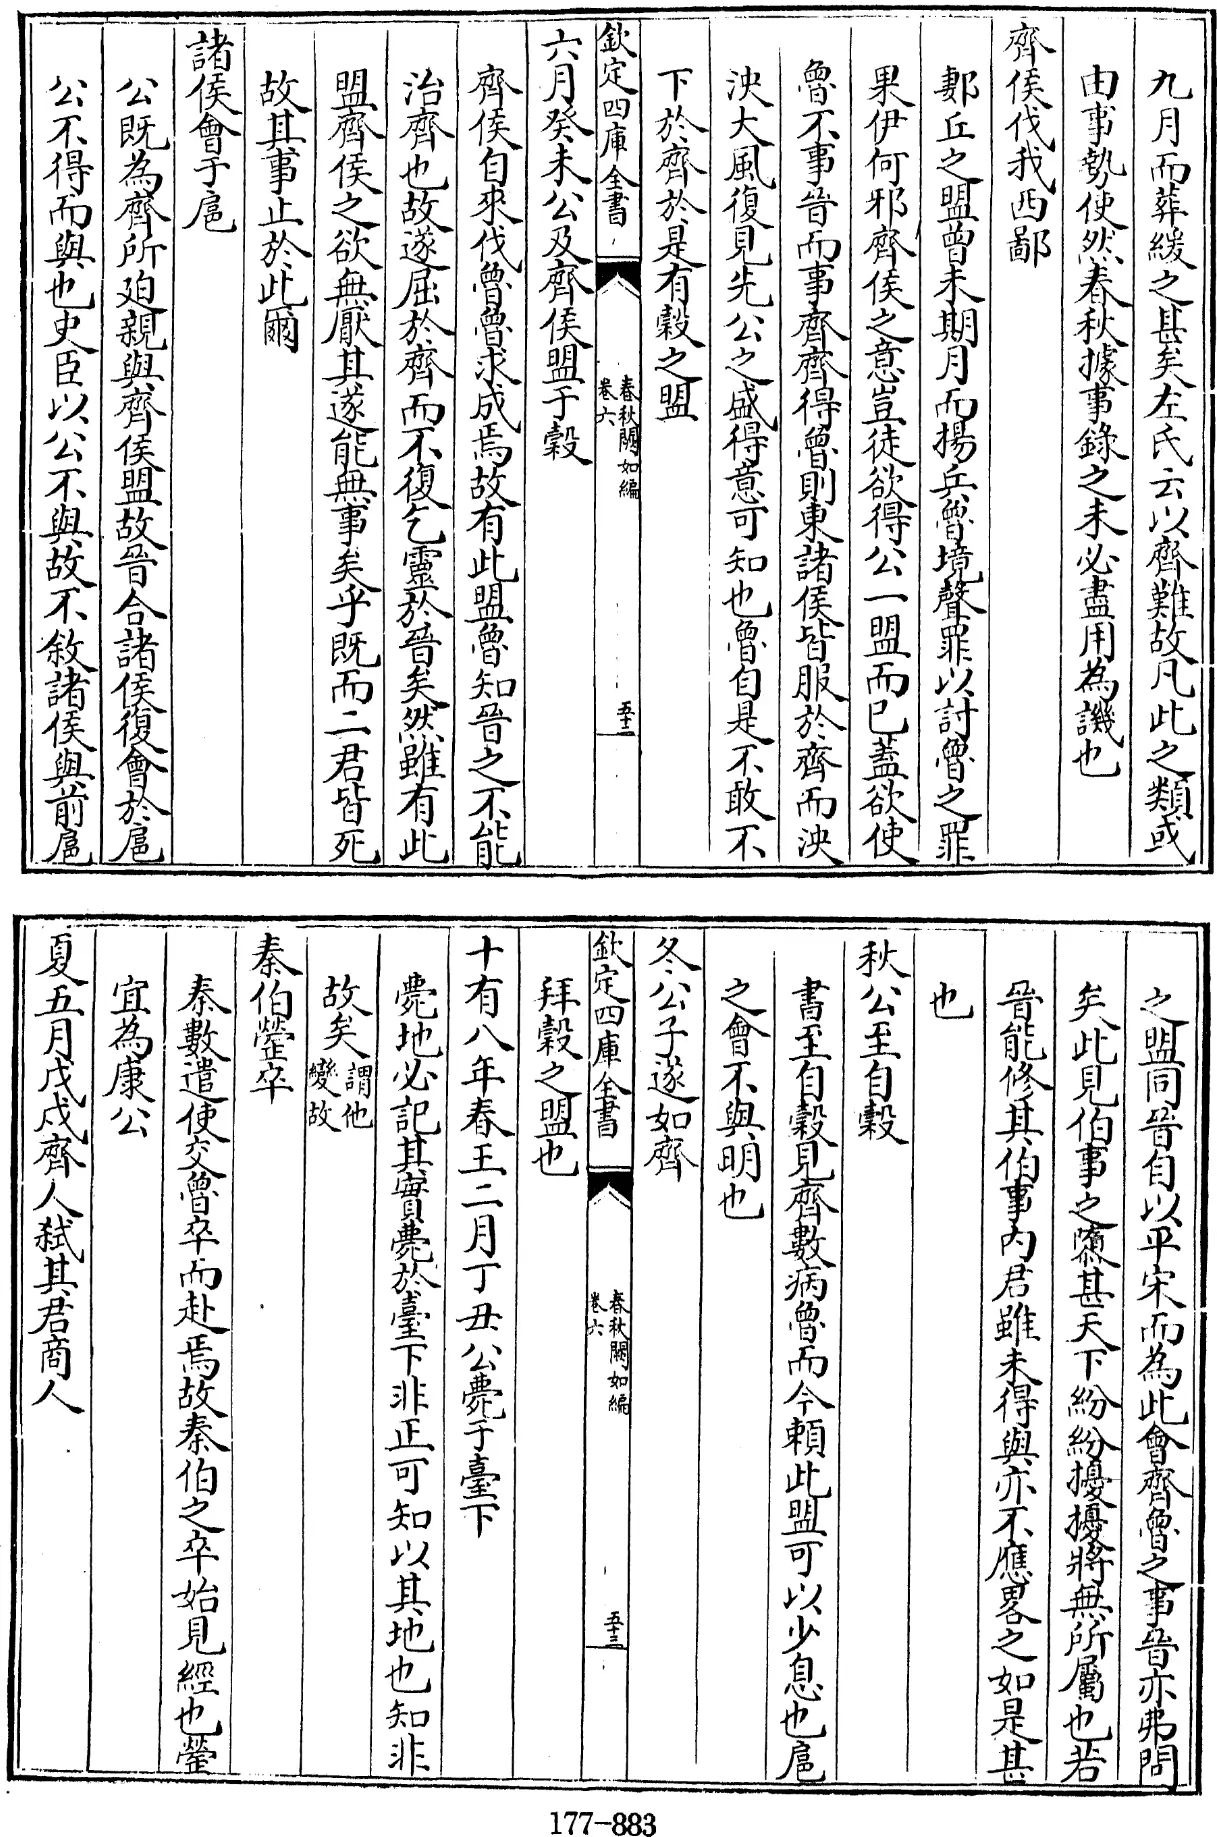 九月而葬緩之甚矣左氏云以齊難故凡此之類或
由事勢使然春秋據事錄之未必盡用為譏也
齊侯伐我西鄙
郪丘之盟曾未期月而揚兵魯境聲罪以討魯之罪
果伊何邪齊侯之意豈徒欲得公一盟而已蓋欲使
魯不事晉而事齊齊得魯則東諸侯皆服於齊而泱
泱大風復見先公之盛得意可知也魯自是不敢不
下於齊於是有穀之盟
欽定四庫全書
春秋闕如編
卷六
五十二
六月癸未公及齊侯盟于穀
齊侯自來伐魯魯求成焉故有此盟魯知晉之不能
治齊也故遂屈於齊而不復乞靈於晉矣然雖有此
盟齊侯之欲無厭其遂能無事矣乎既而二君皆死
故其事止於此爾
諸侯會于扈
公既為齊所廹親與齊侯盟故晉合諸侯復會於扈
公不得而與也史臣以公不與故不敘諸侯與前扈
之盟同晉自以平宋而為此會齊魯之事晉亦弗問
矣此見伯事之隳甚天下紛紛擾擾將無所屬也若
晉能修其伯事內君雖未得與亦不應畧之如是甚
也
秋公至自穀
書至自穀見齊數病魯而今賴此盟可以少息也扈
之會不與明也
冬公子遂如齊
欽定四庫全書
春秋闕如編
卷六
五十三
拜穀之盟也
十有八年春王二月丁丑公薨于臺下
薨地必記其實薨於臺下非正可知以其地也知非
故矣謂他變故
秦伯罃卒
秦數遣使交魯卒而赴焉故秦伯之卒始見經也罃
宜為康公
夏五月戊戌齊人弒其君商人
177-883